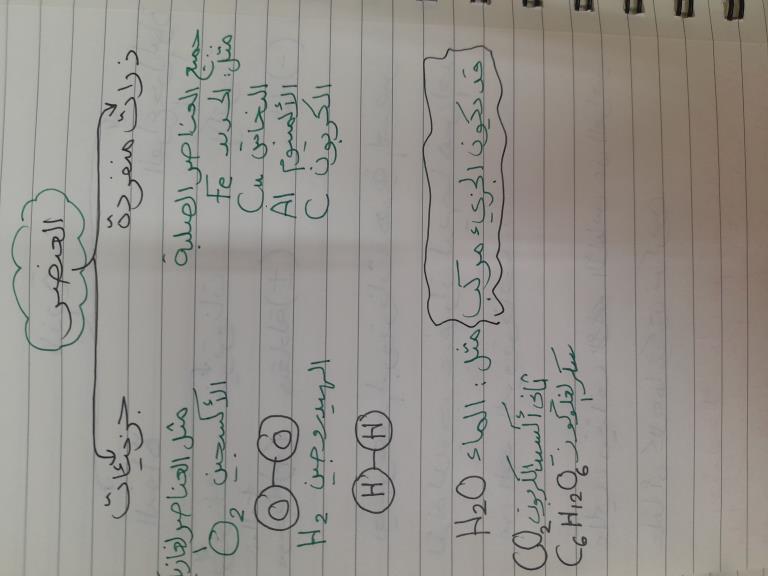 العنصر
ذرات منفردة
جميع العناصر الصلبة
مثل: الحديد Fe
النحاس Cu
الألمنيوم Al
الكربون C
جزيئات
مثل العناصر الغازية
الأكسجين O2
O O
الهيدروجين H2
H H
قد تكون الجزيء مركب
مثل: الماء H2O
ثاني أكسيد الكربون CO2
سكر الغلوكوز C6H12O6